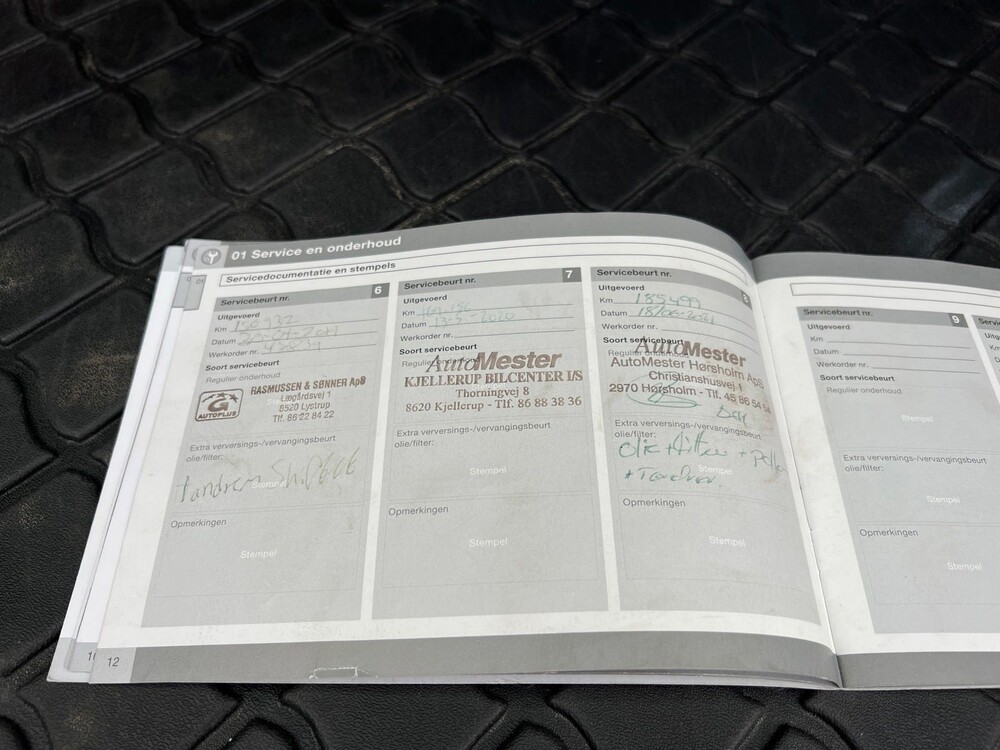 01 Service en onderhoud
Servicedocumentatie en stempels
Servicebeurt nr. 6
Uitgevoerd
Km
Datum
Werkorder nr.
Soort servicebeurt
Regulier onderhoud
RASMUSSEN & SØNNER ApS
Lægårdsvej 1
8520 Lystrup
Tlf. 86 22 84 22
G
AUTOPLUS
Extra verversings-/vervangingsbeurt
olie/filter:
tandrem skiftet
Stempel
Opmerkingen
Stempel
Servicebeurt nr. 7
Uitgevoerd
Km
Datum 13-5-2020
Werkorder nr.
Soort servicebeurt
Regulier onderhoud
AutoMester
KJELLERUP BILCENTER I/S
Thorningvej 8
8620 Kjellerup - Tlf. 86 88 38 36
Extra verversings-/vervangingsbeurt
olie/filter:
Stempel
Opmerkingen
Stempel
Servicebeurt nr. 8
Uitgevoerd
Km 185499
Datum 18/06-2021
Werkorder nr.
Soort servicebeurt
Regulier onderhoud
AutoMester
AutoMester Hørsholm ApS
Christianshusvej 1
2970 Hørsholm - Tlf. 45 86 54 54
Extra verversings-/vervangingsbeurt
olie/filter:
Olie + filter + pollen
Stempel
Opmerkingen
Stempel
Servicebeurt nr. 9
Uitgevoerd
Km
Datum
Werkorder nr.
Soort servicebeurt
Regulier onderhoud
Stempel
Extra verversings-/vervangingsbeurt
olie/filter:
Stempel
Opmerkingen
Stempel
12